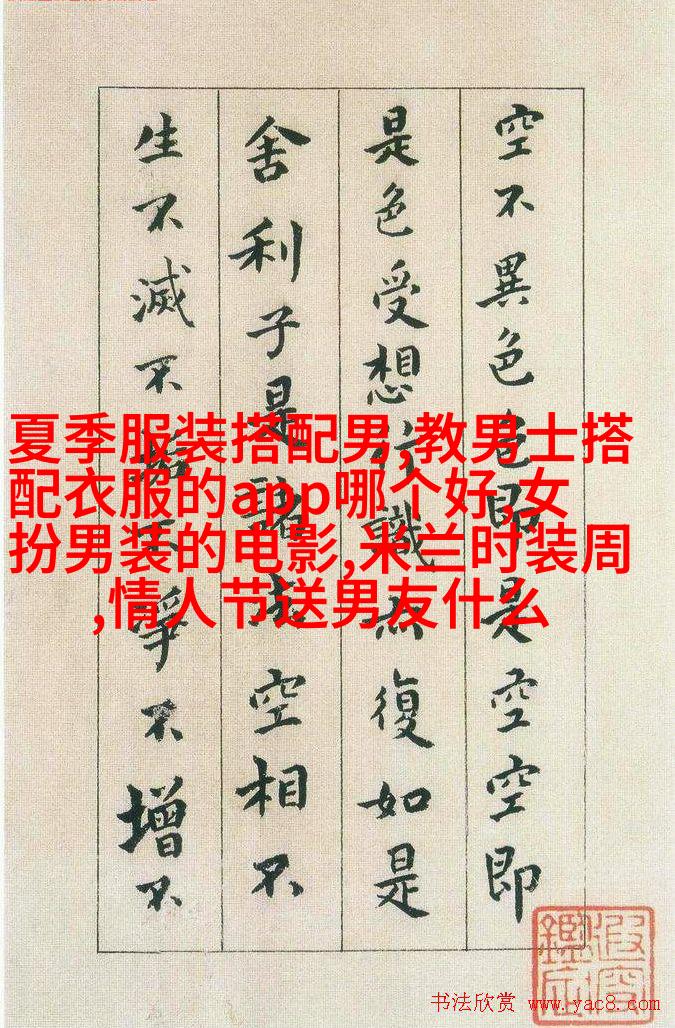 空不異色色即是空空即
是色受想行識亦復如是
舍利子是諸法空相不
生不滅不垢不淨不增不
夏季服装搭配男,教男士搭
配衣服的app哪个好,女
扮男装的电影,米兰时装周
,情人节送男友什么
书法欣赏 www.yac8.com